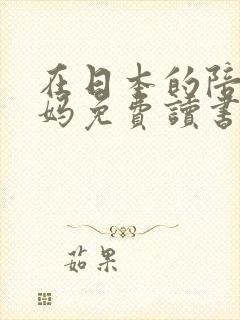 在日本的陪
妈免費讀書
茹果